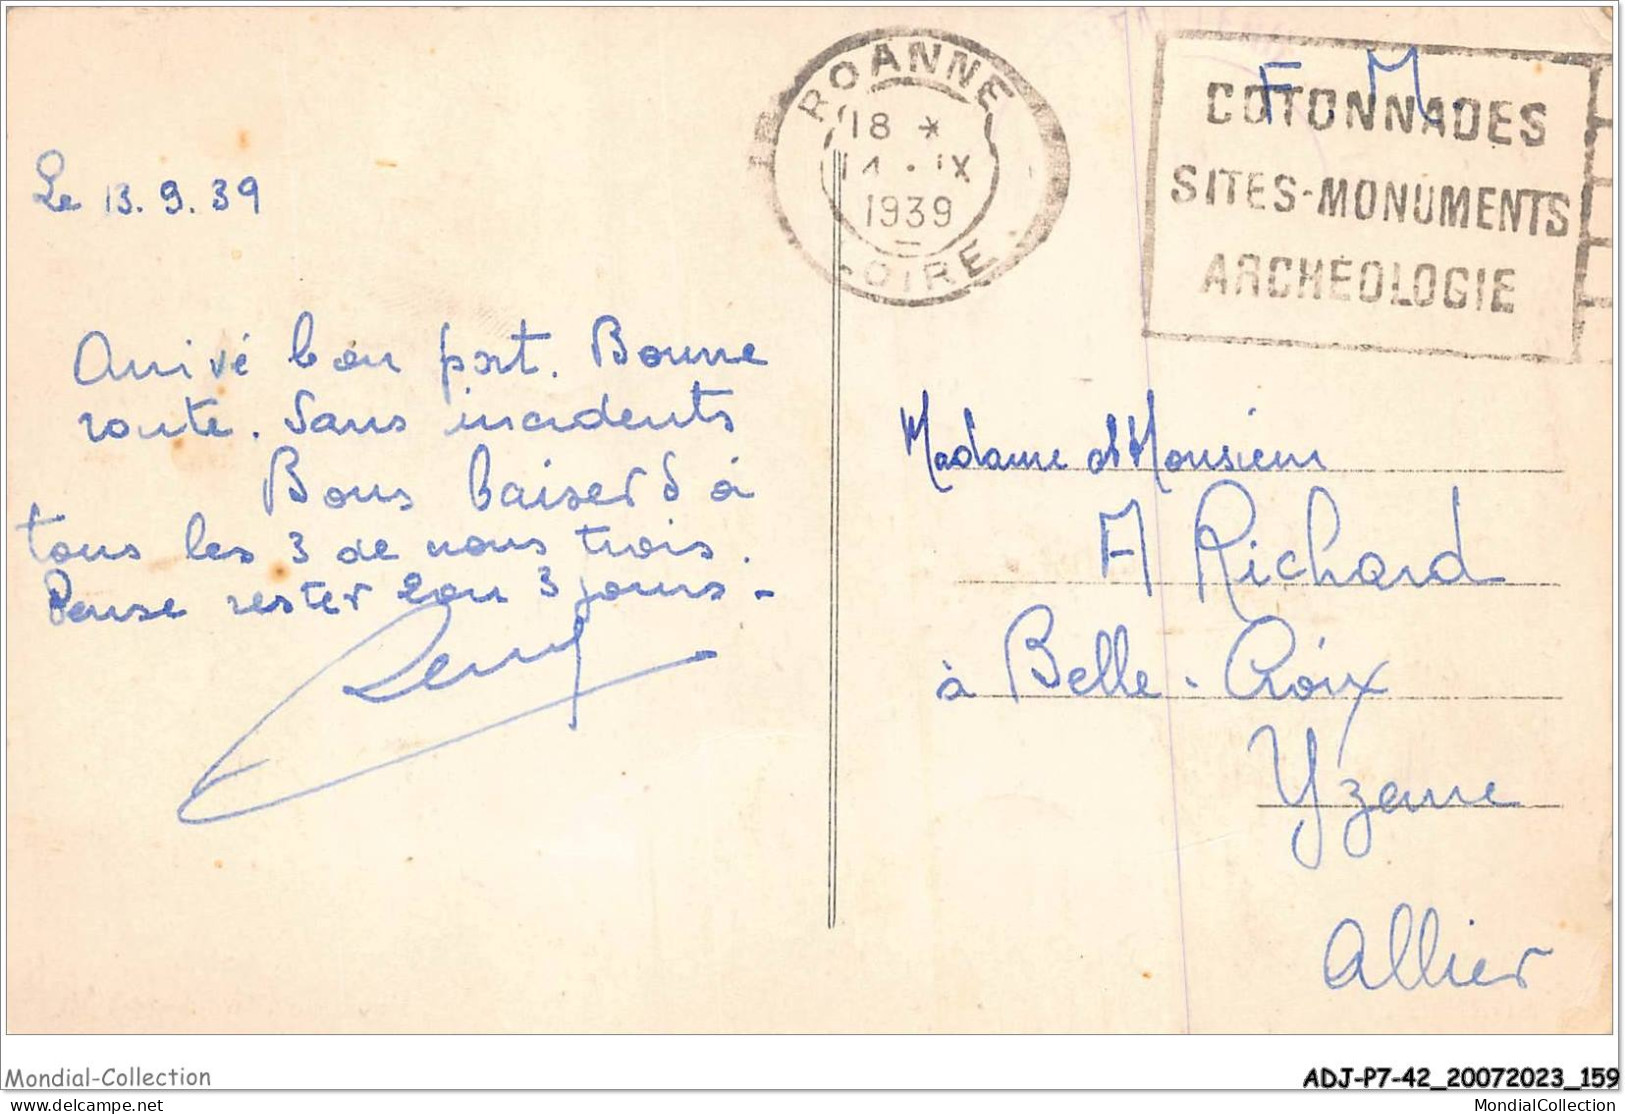 Le 13.9.39
Arrivé bon port. Bonne
route. Sans incidents
Bons baisers à
tous les 3 de nous trois.
Pense rester 2 ou 3 jours -
ROANNE
18 *
IX
1939
LOIRE
F. M.
COTONNADES
SITES-MONUMENTS
ARCHÉOLOGIE
Madame et Monsieur
A Richard
à Belle-Croix
Yzeure
Allier
Mondial-Collection
ADJ-P7-42_20072023_159
delcampe.net
MondialCollection